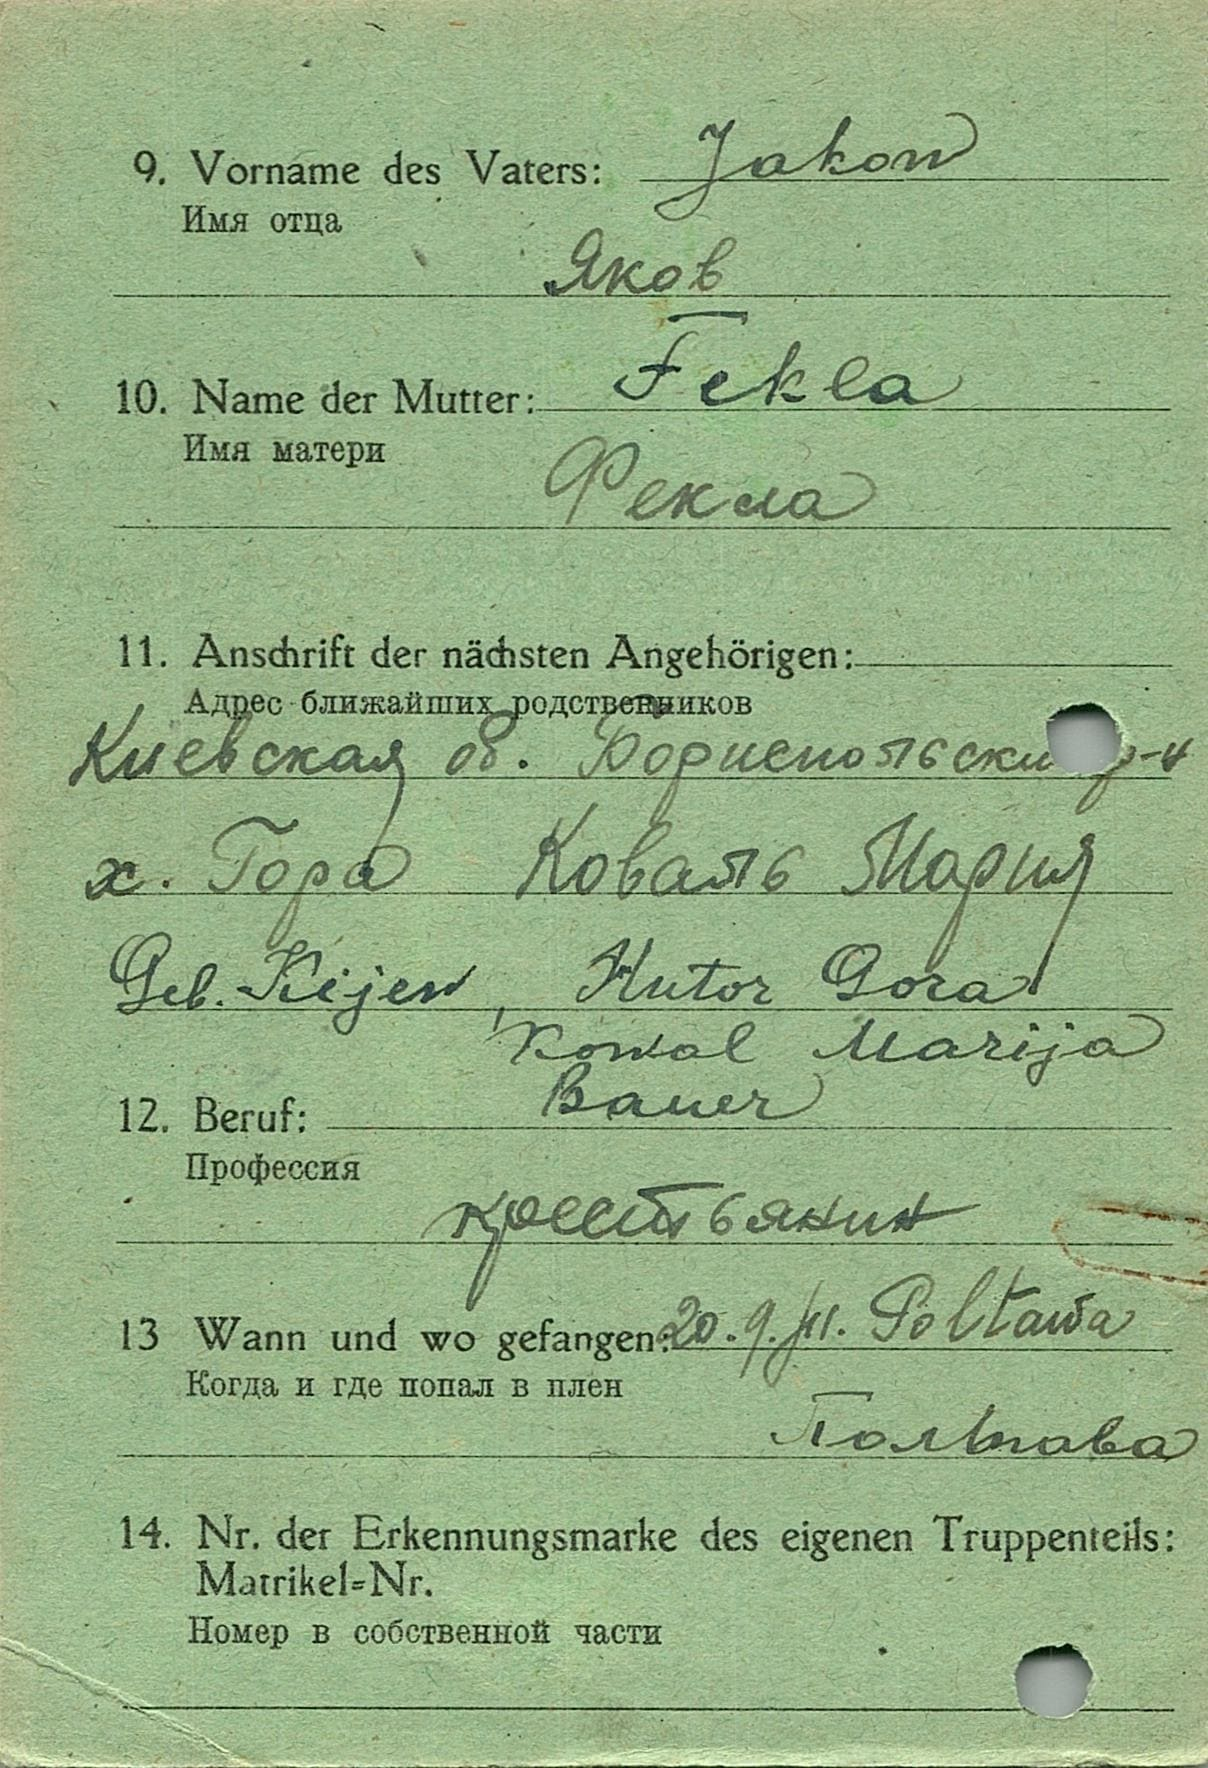 9. Vorname des Vaters: Jakow
Имя отца
Яков
10. Name der Mutter: Fekla
Имя матери
Фекла
11. Anschrift der nächsten Angehörigen:
Адрес ближайших родственников
Киевская об. Бориспольски р-н
х. Гора Коваль Мария
Geb. Kijew, Hutor Gora
Kowal Marija
12. Beruf: Bauer
Профессия
крестьянин
13 Wann und wo gefangen: 20.9.41. Poltawa
Когда и где попал в плен
Полтава
14. Nr. der Erkennungsmarke des eigenen Truppenteils:
Matrikel=Nr.
Номер в собственной части